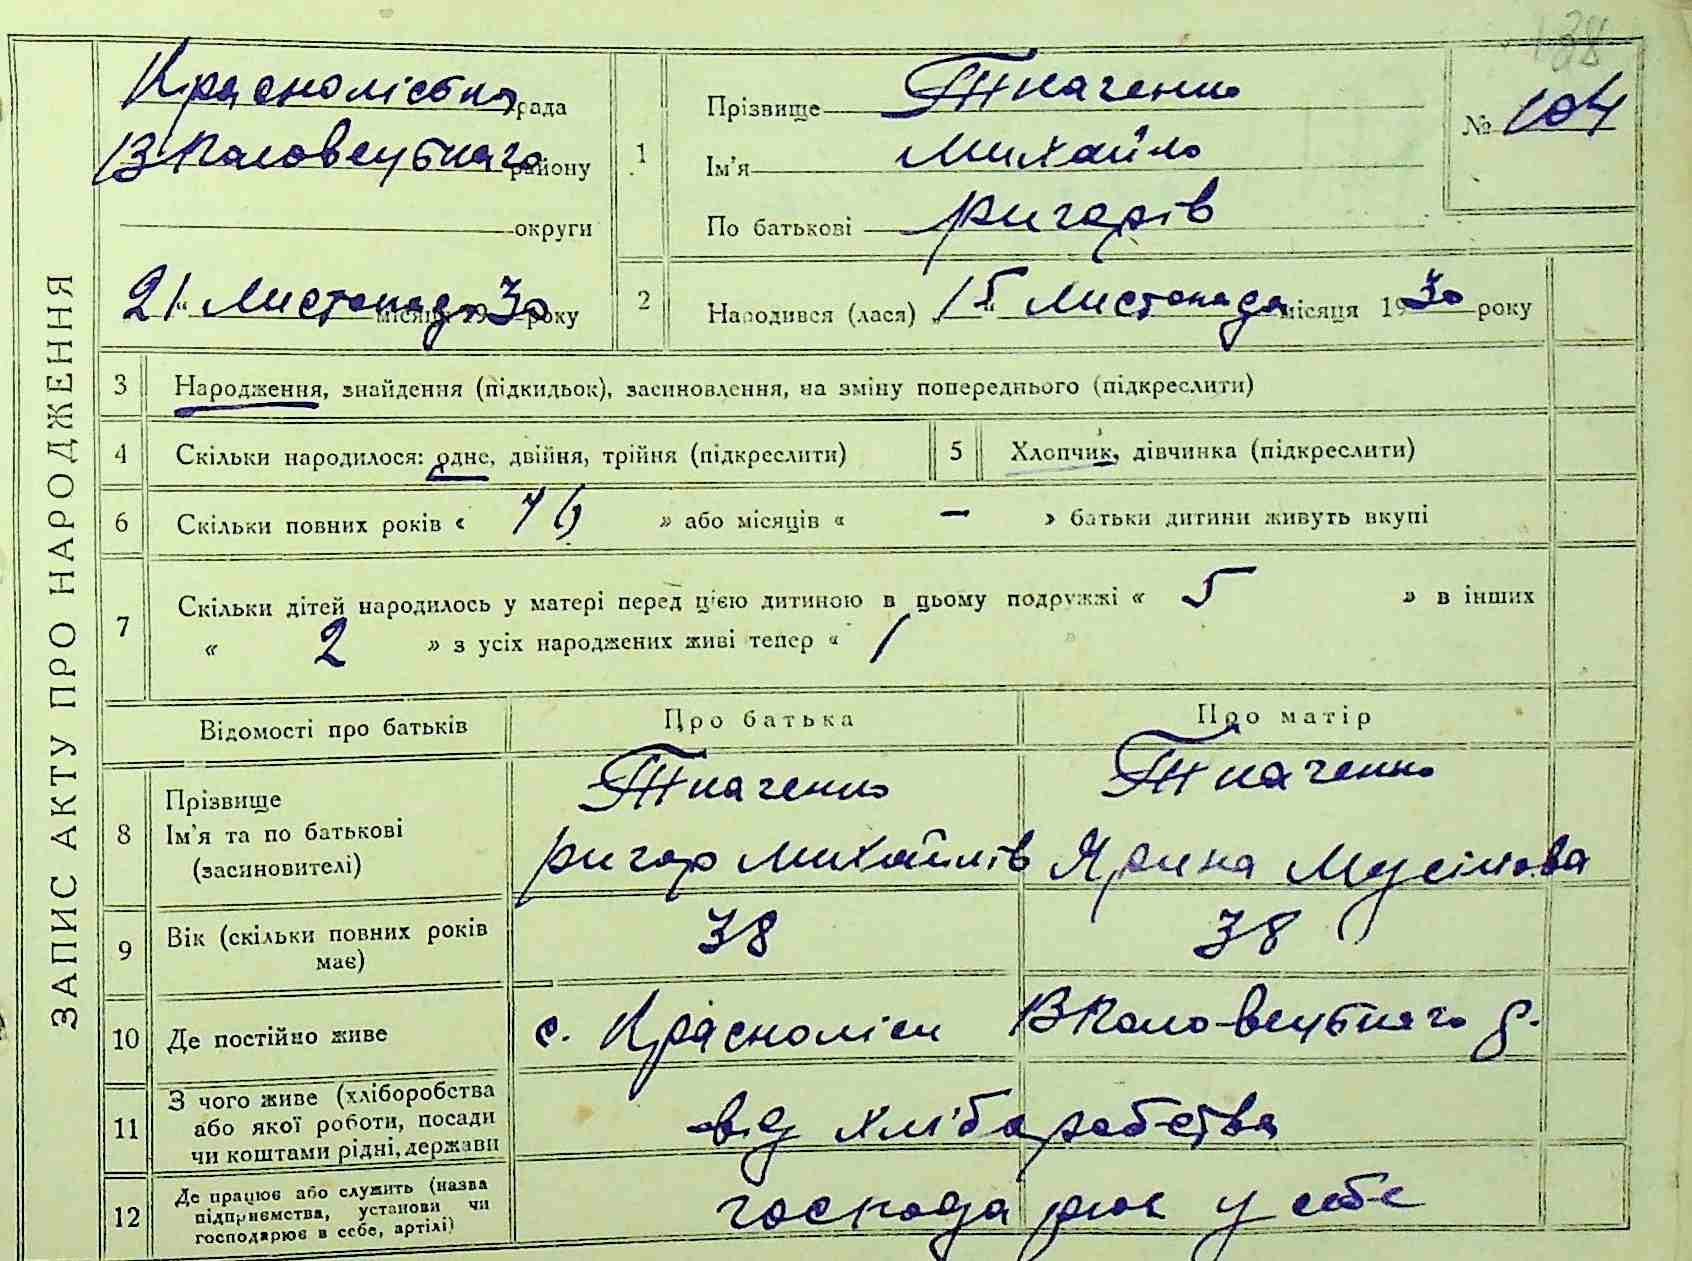 138
ЗАПИС АКТУ ПРО НАРОДЖЕННЯ
Краснолієська рада
района
округи
21 " Листопада місяця 1930 року
1
Прізвище Ткаченко
Ім'я Михайло
По батькові Ригорів
№ 104
2
Народився (лася) „ 15 “ Листопада місяця 1930 року
3 Народження, знайдення (підкидьок), засиновлення, на зміну попереднього (підкреслити)
4 Скільки народилося: одне, двійня, трійня (підкреслити)
5 Хлопчик, дівчинка (підкреслити)
6 Скільки повних років « » або місяців « – » батьки дитини живуть вкупі
7 Скільки дітей народилось у матері перед цією дитиною в цьому подружжі « 5 » в інших
« 2 » з усіх народжених живі тепер « 1 »
Відомості про батьків Про батька Про матір
8 Прізвище Ткаченко Ткаченко
Ім'я та по батькові Ригор Михайлів Ярина Мусієва
(засиновителі)
9 Вік (скільки повних років має) 38 38
10 Де постійно живе с. Красноліси р.
11 З чого живе (хліборобства
або якої роботи, посади від хліборобства
чи коштами рідні, держави
12 Де працює або служить (назва
підприємства, установи чи господарює у себе
господарює в себе, артілі)